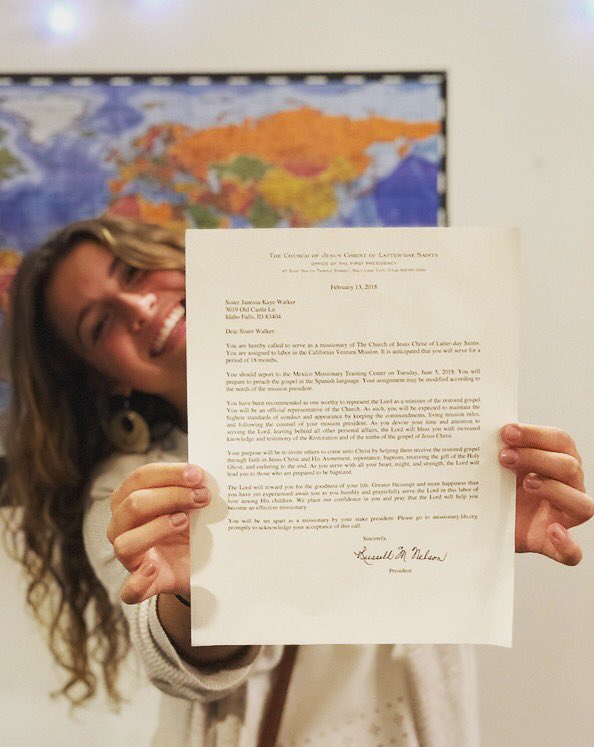 THE CHURCH OF JESUS CHRIST OF LATTER-DAY SAINTS
OFFICE OF THE FIRST PRESIDENCY
47 EAST SOUTH TEMPLE STREET, SALT LAKE CITY, UTAH 84150-1200
February 13, 2018
Sister Juneina Kaye Walker
3019 Old Castle Ln
Idaho Falls, ID 83404
Dear Sister Walker:
You are hereby called to serve as a missionary of The Church of Jesus Christ of Latter-day Saints.
You are assigned to labor in the California Ventura Mission. It is anticipated that you will serve for a
period of 18 months.
You should report to the Mexico Missionary Training Center on Tuesday, June 5, 2018. You will
prepare to preach the gospel in the Spanish language. Your assignment may be modified according to
the needs of the mission president.
You have been recommended as one worthy to represent the Lord as a minister of the restored gospel.
You will be an official representative of the Church. As such, you will be expected to maintain the
highest standards of conduct and appearance by keeping the commandments, living mission rules,
and following the counsel of your mission president. As you devote your time and attention to
serving the Lord, leaving behind all other personal affairs, the Lord will bless you with increased
knowledge and testimony of the Restoration and of the truths of the gospel of Jesus Christ.
Your purpose will be to invite others to come unto Christ by helping them receive the restored gospel
through faith in Jesus Christ and His Atonement, repentance, baptism, receiving the gift of the Holy
Ghost, and enduring to the end. As you serve with all your heart, might, and strength, the Lord will
lead you to those who are prepared to be baptized.
The Lord will reward you for the goodness of your life. Greater blessings and more happiness than
you have yet experienced await you as you humbly and prayerfully serve the Lord in this labor of
love among His children. We place our confidence in you and pray that the Lord will help you
become an effective missionary.
You will be set apart as a missionary by your stake president. Please go to missionary.lds.org
promptly to acknowledge your acceptance of this call.
Sincerely,
Russell M Nelson
President